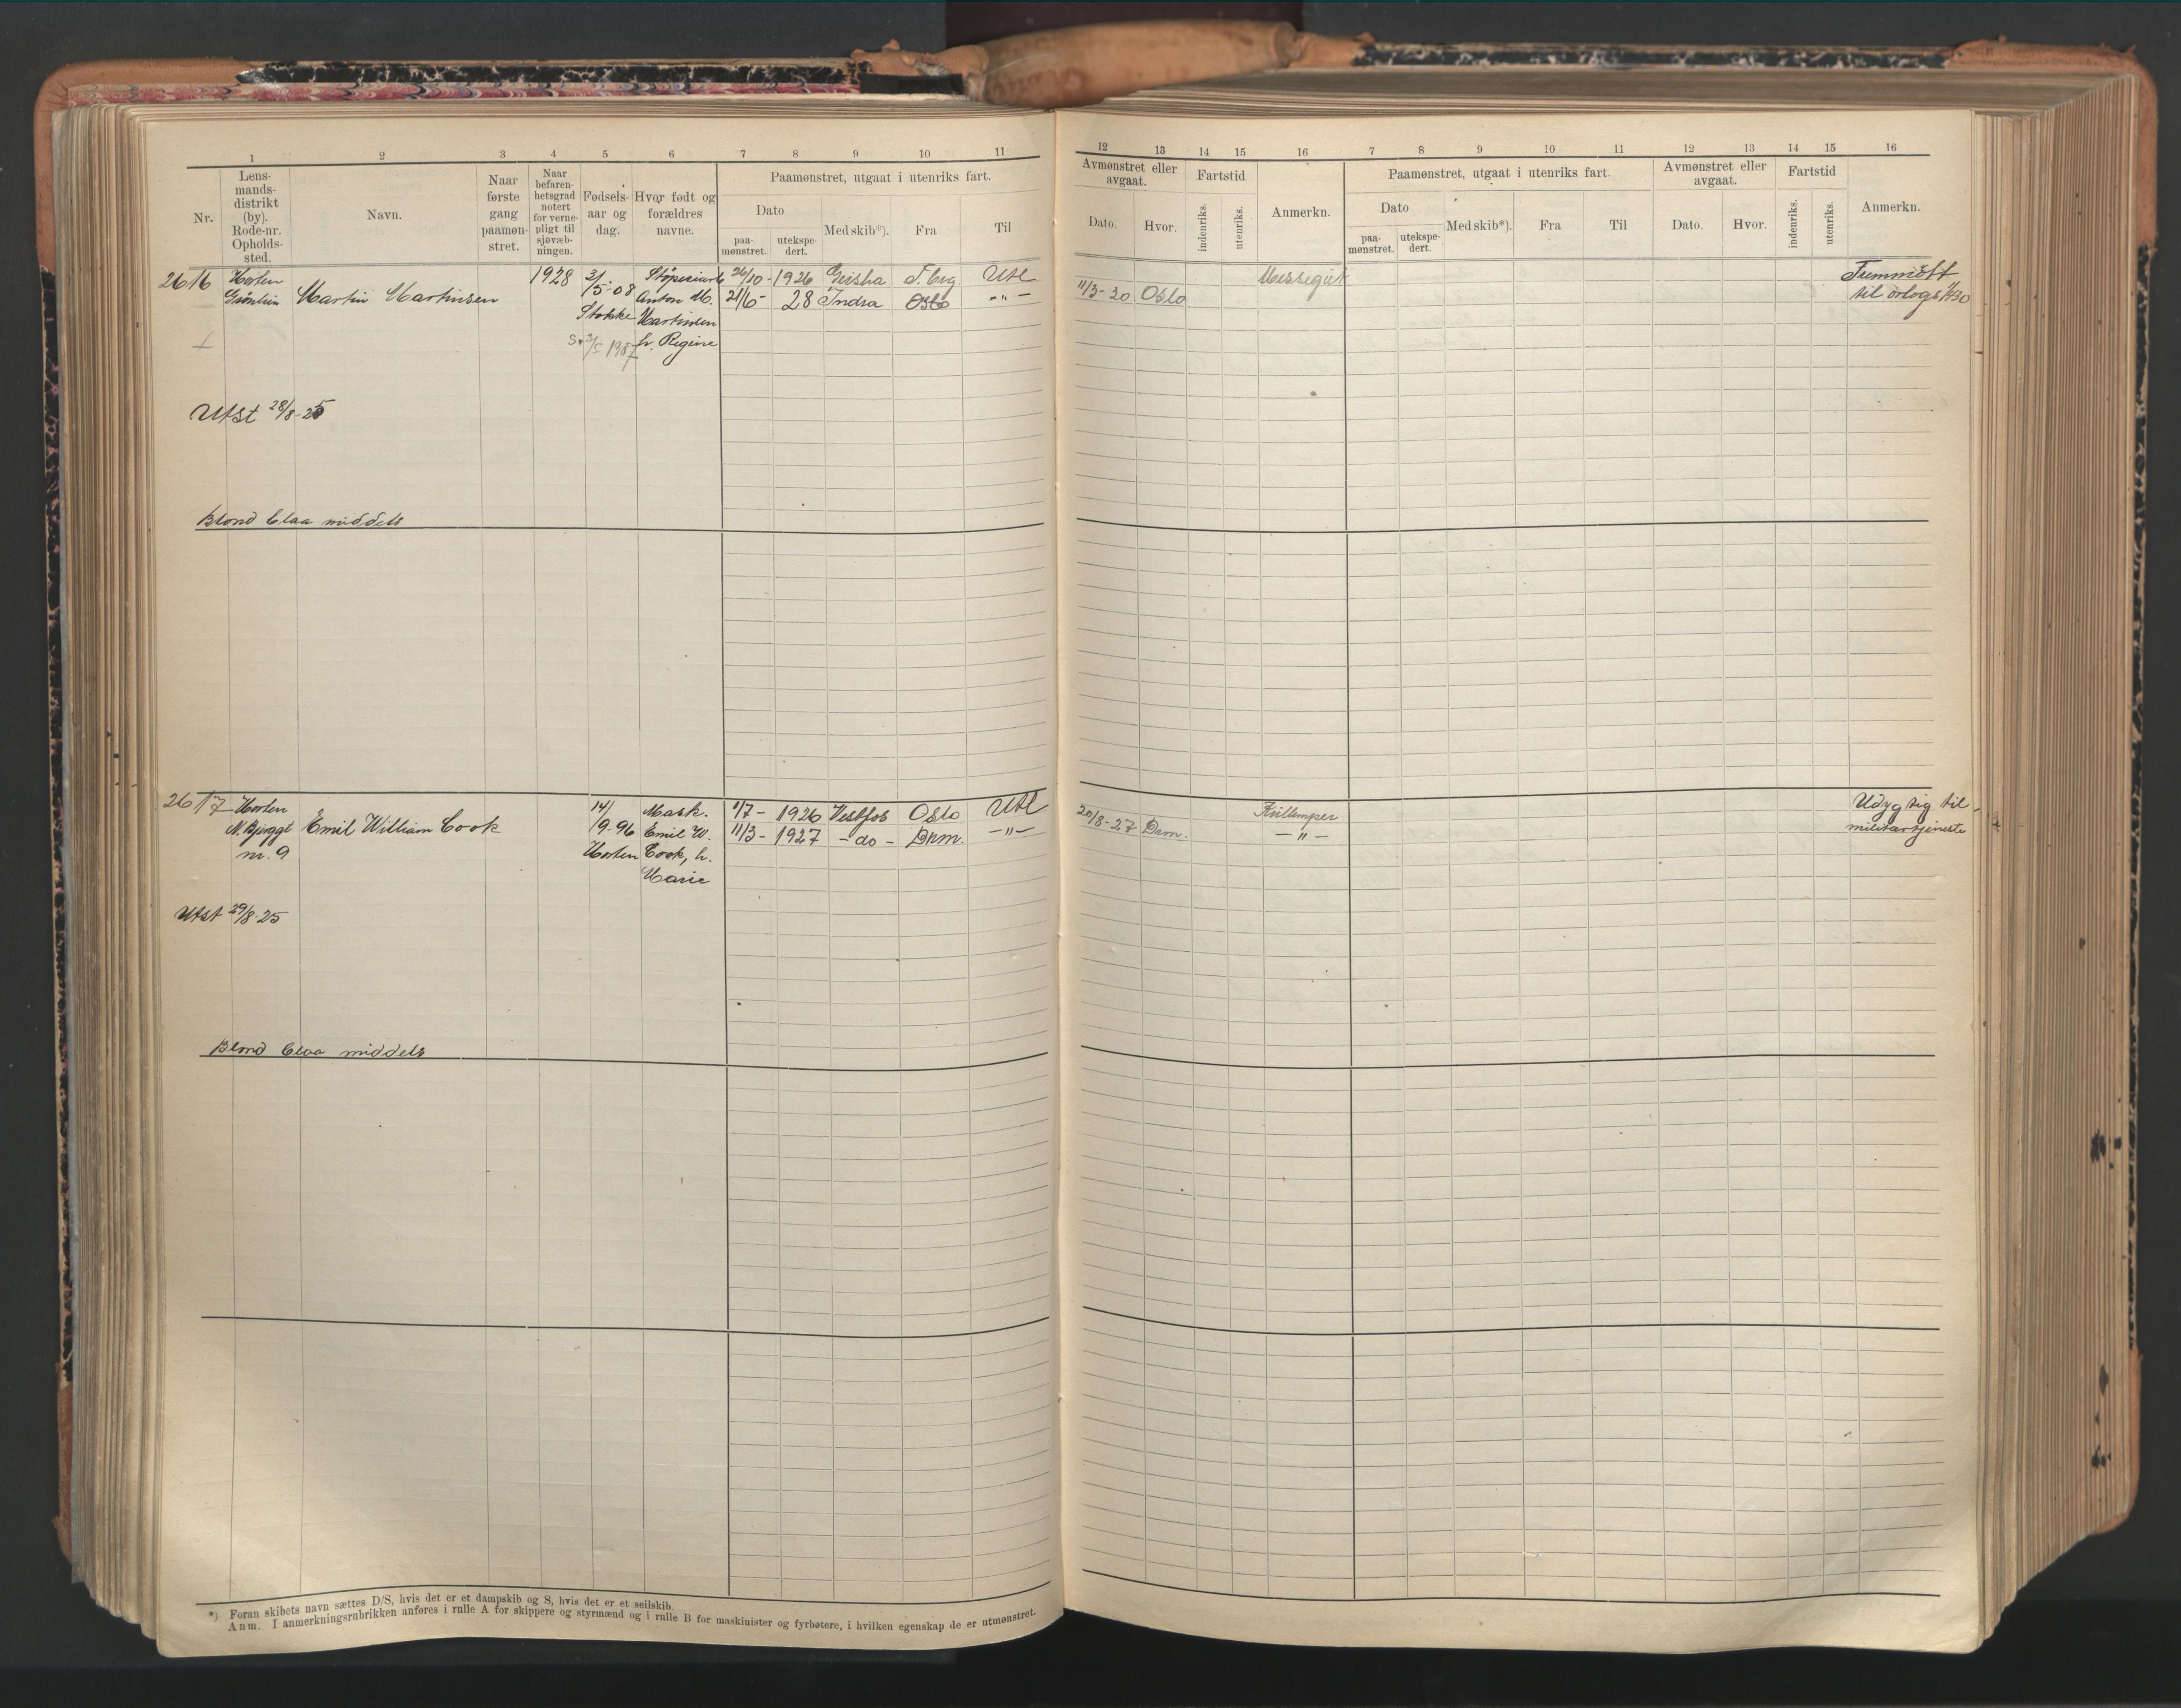 1 2 3 4 5 6 7 8 9 10 11
Nr.
Lens-
mands-
distrikt
(by).
Rode-nr.
Opholds-
sted.
Navn.
Naar
første
gang
paamøn-
stret.
Naar
befaren-
hetsgrad
notert
for verne-
pligt til
sjøvæb-
ningen.
Fødsels-
aar og
dag.
Hvor født og
forældres
navne.
Paamønstret, utgaat i utenriks fart.
Dato
paa-
mønstret.
utekspe-
dert.
Med skib*).
Fra
Til
2616 Horten 1928 3/ 26/10-1926 Geisha T.berg Utl
Martin Martinsen 5-08 Anton M. 21/6- 28 Indra Oslo -"-
Stokke Martinsen
S. 3/5 1987 h. Regine
Utst 28/8-25
Blond blaa middels
2617 Horten 14/ Mask. 1/7- 1926 Vestfos Oslo Utl
Emil William Cook 9-96 Emil W. 11/3- 1927 -do- Drm. -"-
nr. 9 Horten Cook, h.
Marie
Utst 29/8-25
Blond blaa middels
*) Foran skibets navn sættes D/S, hvis det er et dampskib og S, hvis det er et seilskib.
Anm. I anmerkningsrubrikken anføres i rulle A for skippere og styrmænd og i rulle B for maskinister og fyrbøtere, i hvilken egenskap de er utmønstret.
12 13 14 15 16 7 8 9 10 11 12 13 14 15 16
Avmønstret eller
avgaat.
Dato.
Hvor.
Fartstid
indenriks.
utenriks.
Anmerkn.
Paamønstret, utgaat i utenriks fart.
Dato
paa-
mønstret.
utekspe-
dert.
Med skib*).
Fra
Til
Avmønstret eller
avgaat.
Dato.
Hvor.
Fartstid
indenriks.
utenriks.
Anmerkn.
Messegut Fremmött
11/3-30 Oslo til orlogs
Kullemper Udygtig til
20/8-27 Drm. -"- militærtjeneste